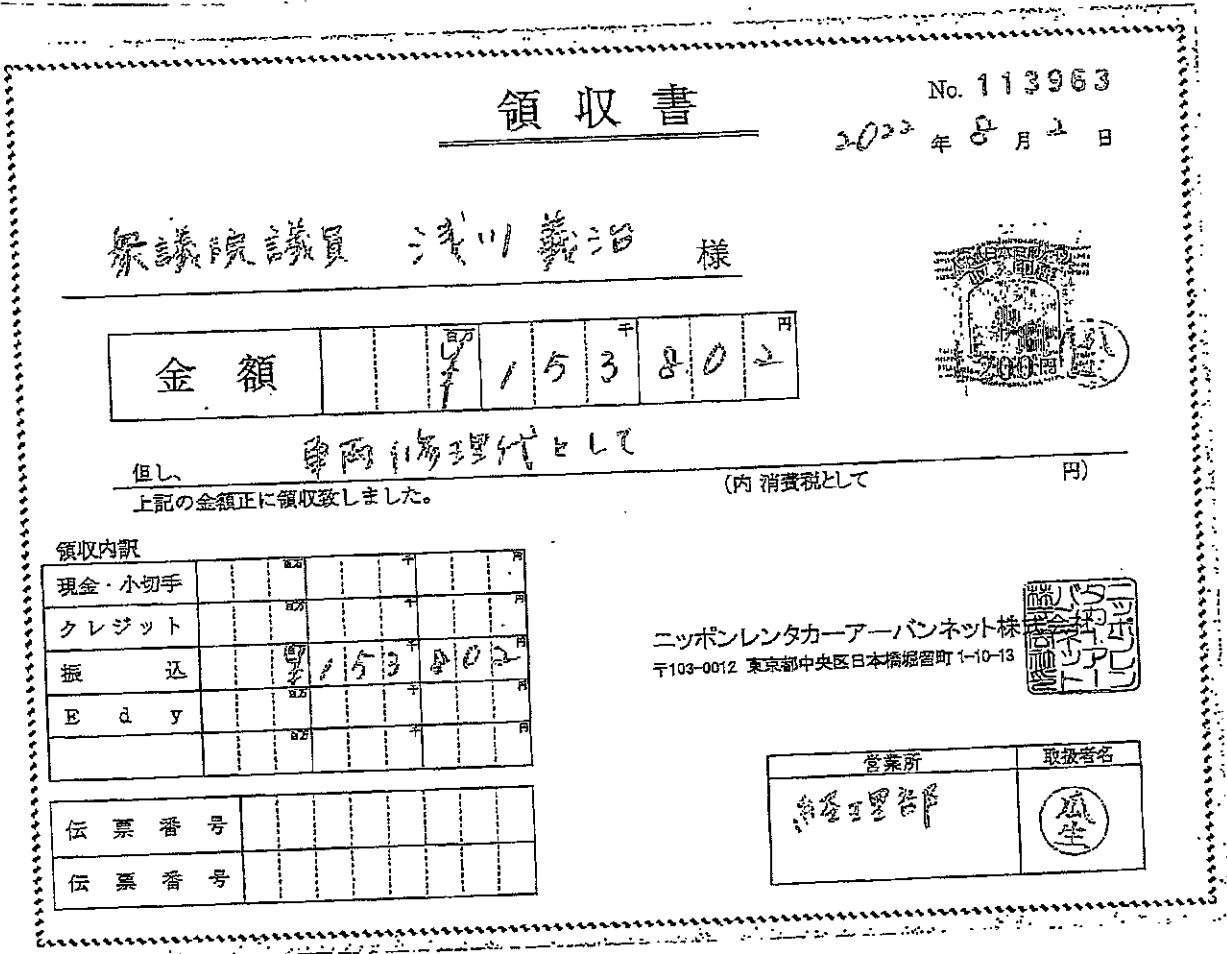 領収書
No. 113963
2022 年 8 月 2 日
衆議院議員 浅川義治 様
金額 百万 千 円 ¥153802
但し、 車両修理代として
上記の金額正に領収致しました。 (内 消費税として 円)
200円
領収内訳
現金・小切手 百万 千 円
クレジット 百万 千 円
振込 百万 千 円 ¥153802
Edy 百万 千 円
百万 千 円
ニッポンレンタカーアーバンネット株式会社
〒103-0012 東京都中央区日本橋堀留町 1-10-13
営業所 取扱者名
経理部 瓜生
伝票番号
伝票番号